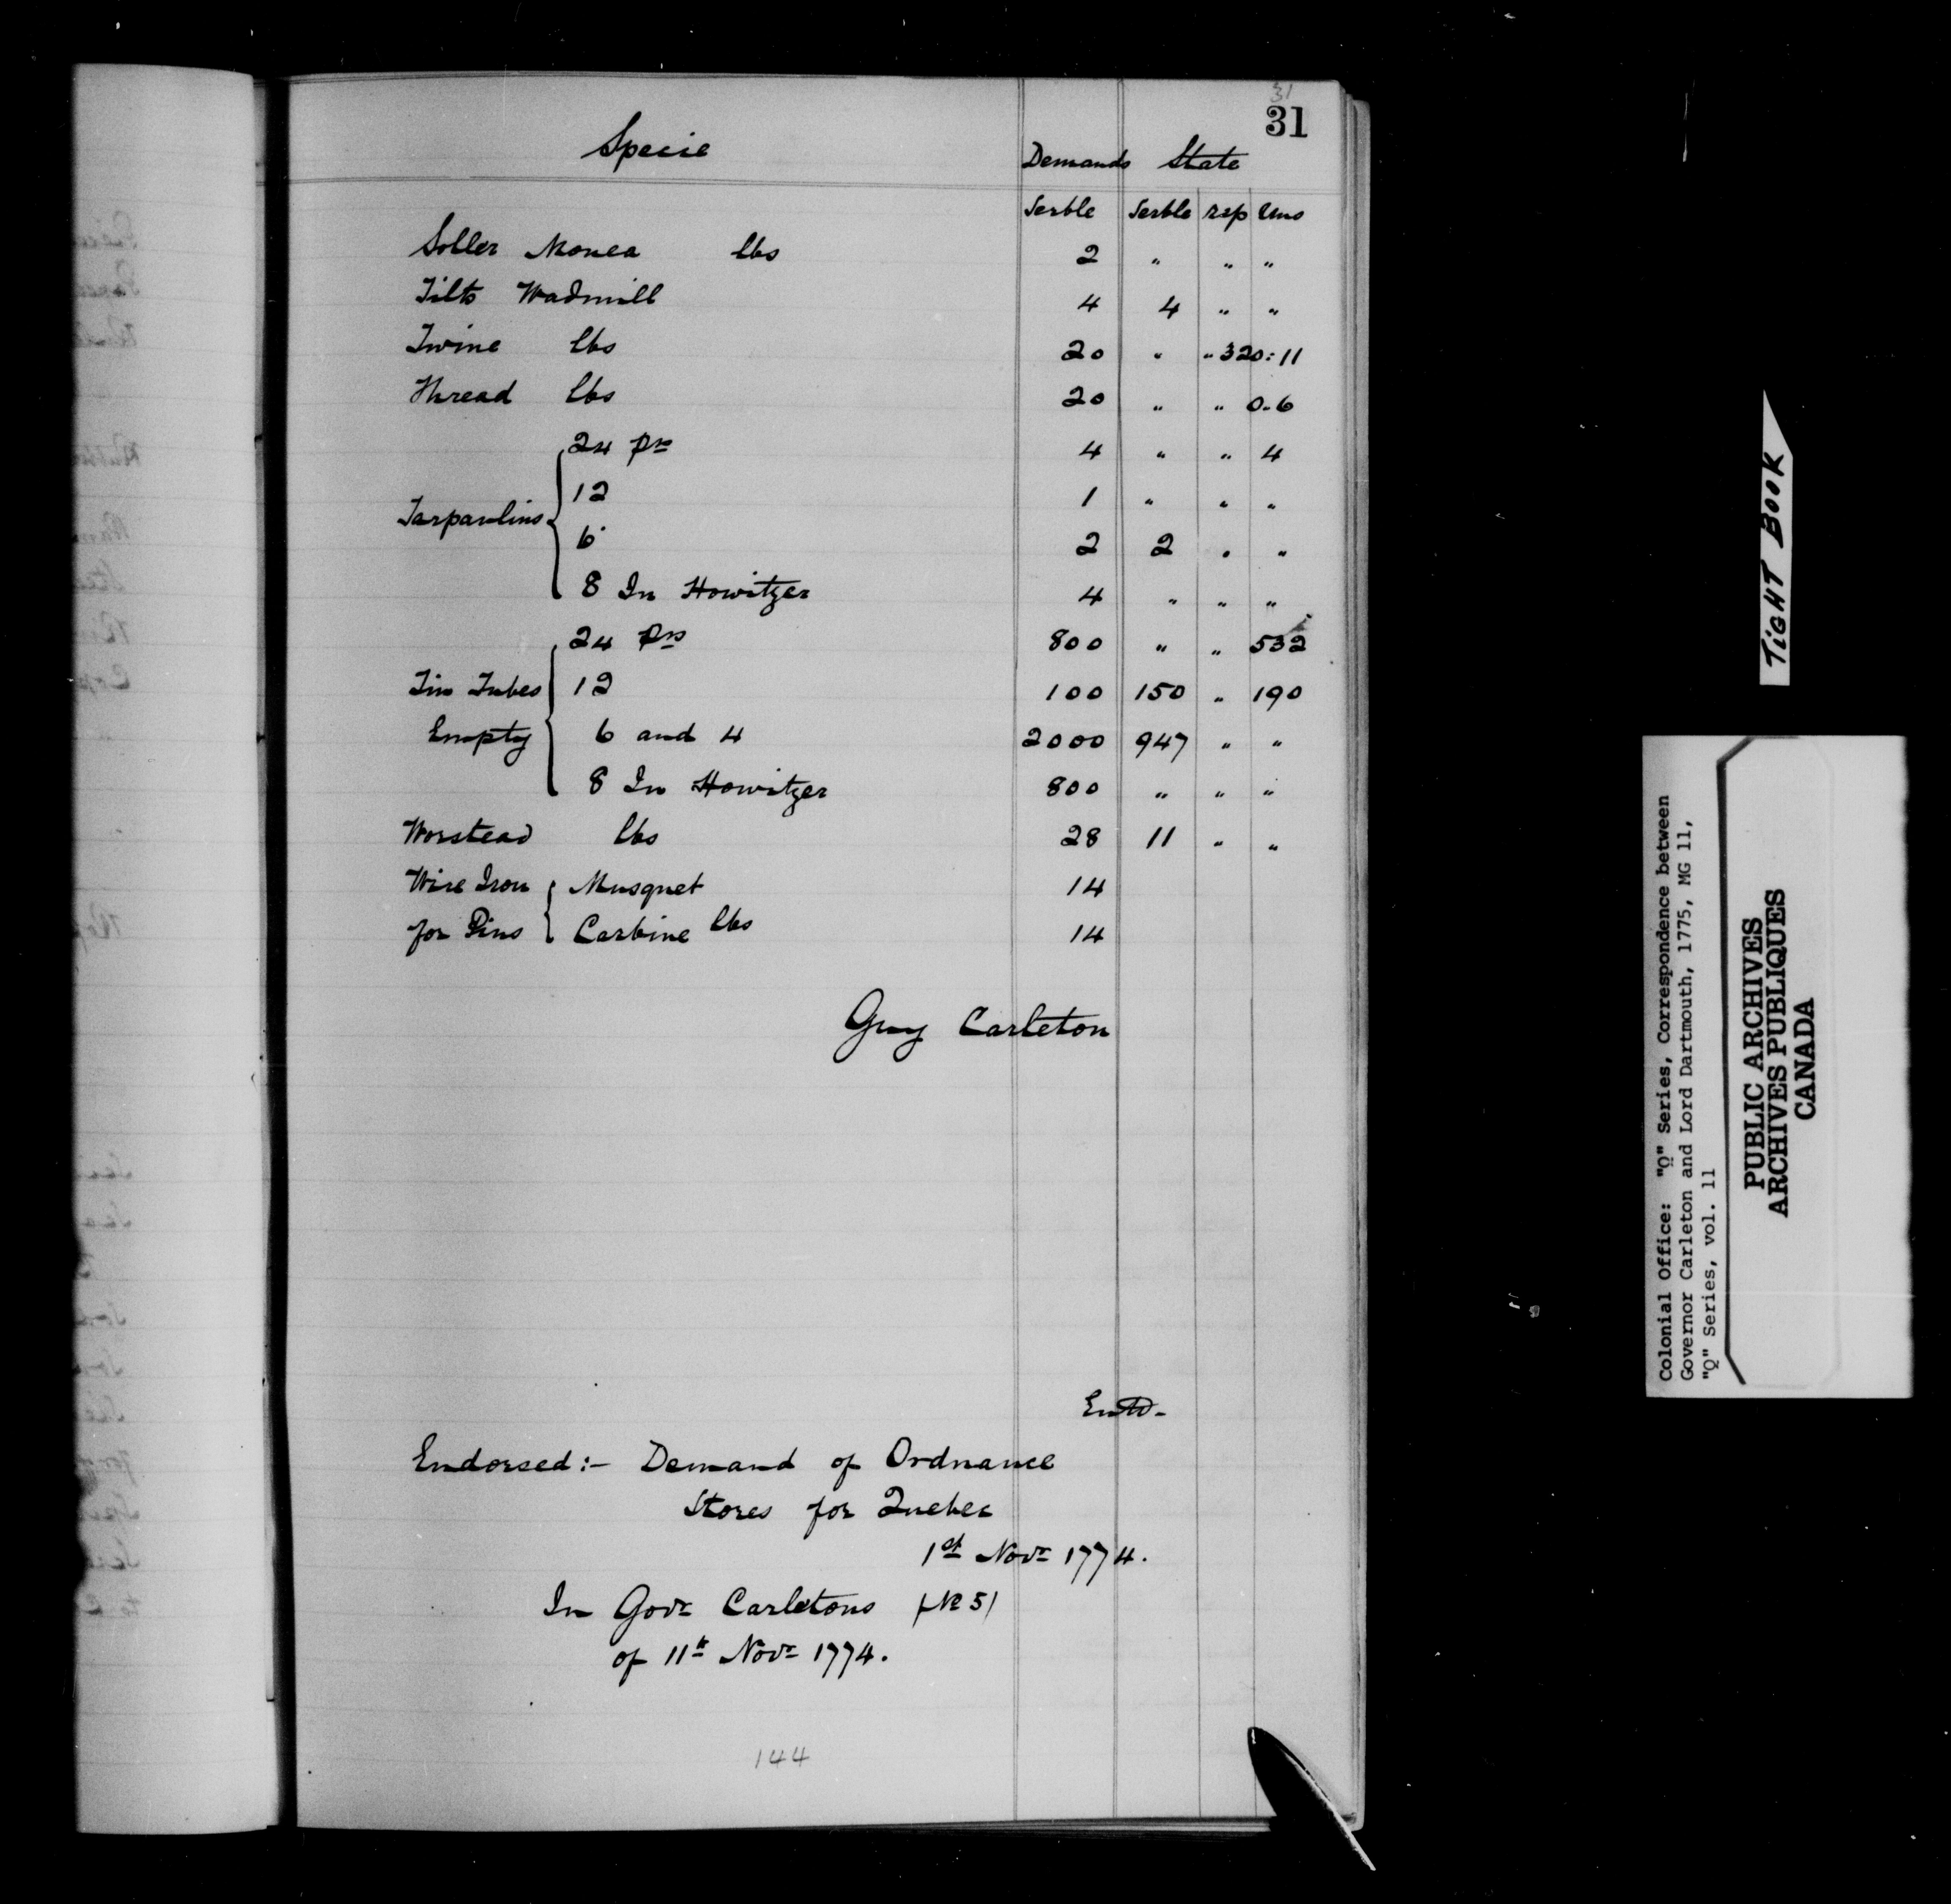 31
31
Specie Demands State
Serble Serble rep Uns
Soller Monea lbs 2 " " "
Tilts Wadmill 4 4 " "
Twine lbs 20 " " 320:11
Thread lbs 20 " " 0.6
24 prs 4 " " 4
12 1 " " "
Tarpaulins
6 2 2 " "
8 In Howitzer 4 " " "
24 Prs 800 " " 532
Tin Tubes 12 100 150 " 190
Empty 6 and 4 2000 947 " "
8 In Howitzer 800 " " "
Worstead lbs 28 11 " "
Wire Iron Musquet 14
for Pins Carbine lbs 14
Guy Carleton
Entd-
Endorsed:- Demand of Ordnance
Stores for Quebec
1st Novr 1774.
In Govr Carletons (No 5)
of 11th Novr 1774.
144
TIGHT BOOK
Colonial Office: "Q" Series, Correspondence between
Governor Carleton and Lord Dartmouth, 1775, MG 11,
"Q" Series, vol. 11
PUBLIC ARCHIVES
ARCHIVES PUBLIQUES
CANADA